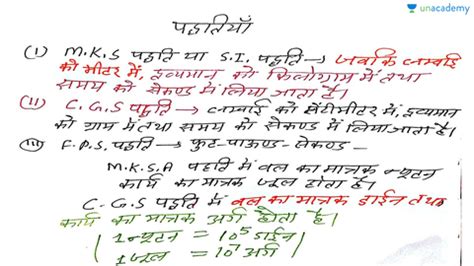 unacademy
पद्दतियाँ
(I) M.K.S पद्दति या S.I. पद्दति → जबकि लम्बाई
को मीटर में, द्रव्यमान को किलोग्राम में तथा
समय को सेकण्ड में लिया जाता है।
(II) C.G.S पद्दति → लम्बाई को सेंटीमीटर में, द्रव्यमान
को ग्राम में तथा समय को सेकण्ड में लिया जाता है।
(III) F.P.S. पद्दति → फुट-पाउण्ड-सेकण्ड
M.K.S.A पद्दति में बल का मात्रक न्यूटन
कार्य का मात्रक जूल होता है।
C.G.S पद्दति में बल का मात्रक डाईन तथा
कार्य का मात्रक अर्ग होता है।
1 न्यूटन = 10⁵ डाईन
1 जूल = 10⁷ अर्ग